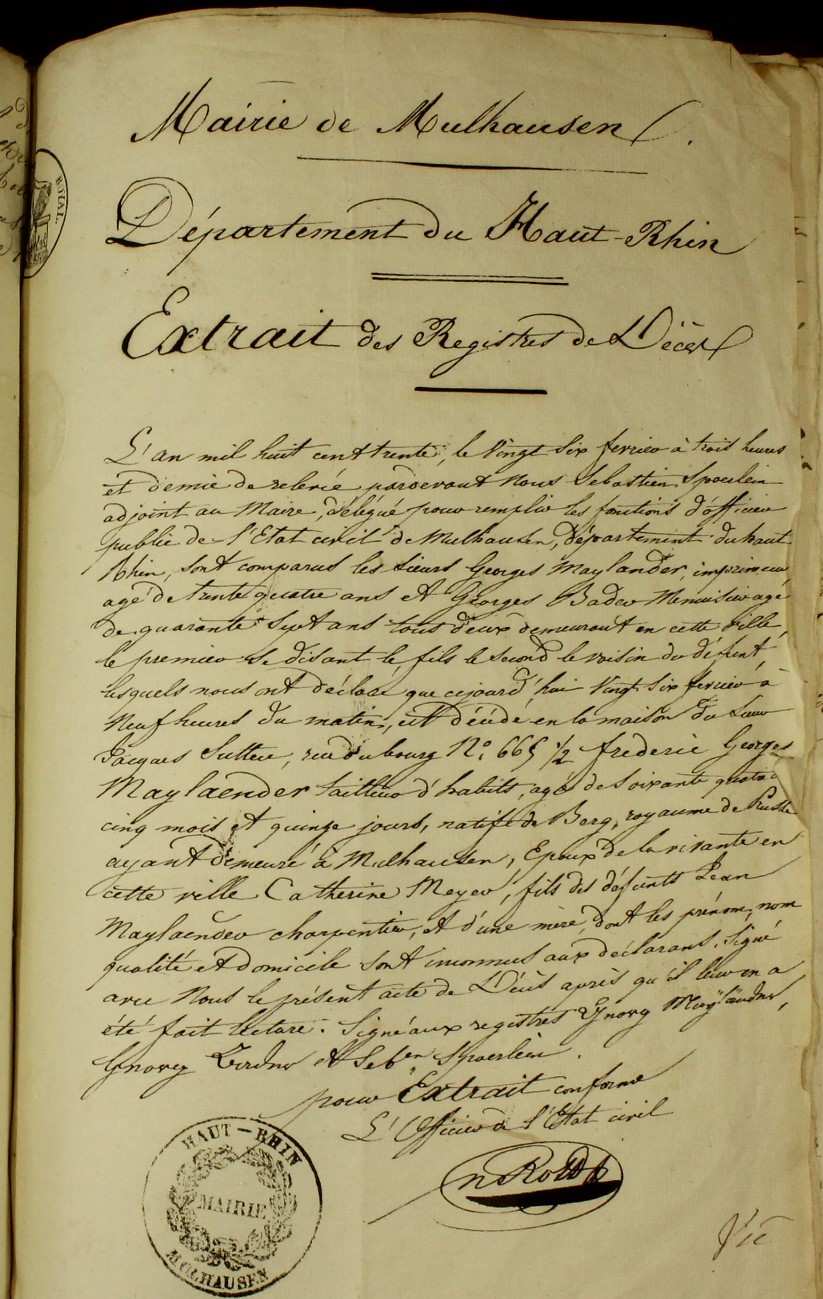 Mairie de Mulhausen.
Département du Haut-Rhin
Extrait des Registres de Décès
L'an mil huit cent trente, le Vingt Six fevrier à trois heures
et demie de relevée pardevant Nous Sebastien Spoerlein
adjoint au Maire, délégué pour remplir les fonctions d'officier
public de l'Etat civil de Mulhausen, département du haut
Rhin, sont comparus les sieurs Georges Maylander, imprimeur
agé de trente quatre ans et Georges Bader Menuisier agé
de quarante Sept ans tous deux demeurant en cette ville,
le premier se disant le fils le second le voisin du défunt,
lesquels nous ont déclaré que cejourd'hui Vingt Six fevrier à
Neuf heures du matin, est décédé en la maison du Sieur
Jacques Sutter, rue du bourg N.º 665 1/2 frederic Georges
Maylaender tailleur d'habits, agé de Soixante quatre
cinq mois et quinze jours, natif de Berg, royaume de Prusse
ayant demeuré à Mulhausen, Epoux de la vivante en
cette ville Catherine Meyer, fils des défunts Jean
Maylaender charpentier, et d'une mère, dont les prénom, nom
qualité et domicile sont inconnus aux déclarans. Signé
avec Nous le présent acte de Décès après qu'il leur en a
été fait lecture. Signé aux registres Georg Mayländer,
Georg Bader et Seb.en Spoerlein.
pour Extrait conforme
L'Officier de l'Etat civil
HAUT-RHIN
MAIRIE
MULHAUSEN
ROYAL